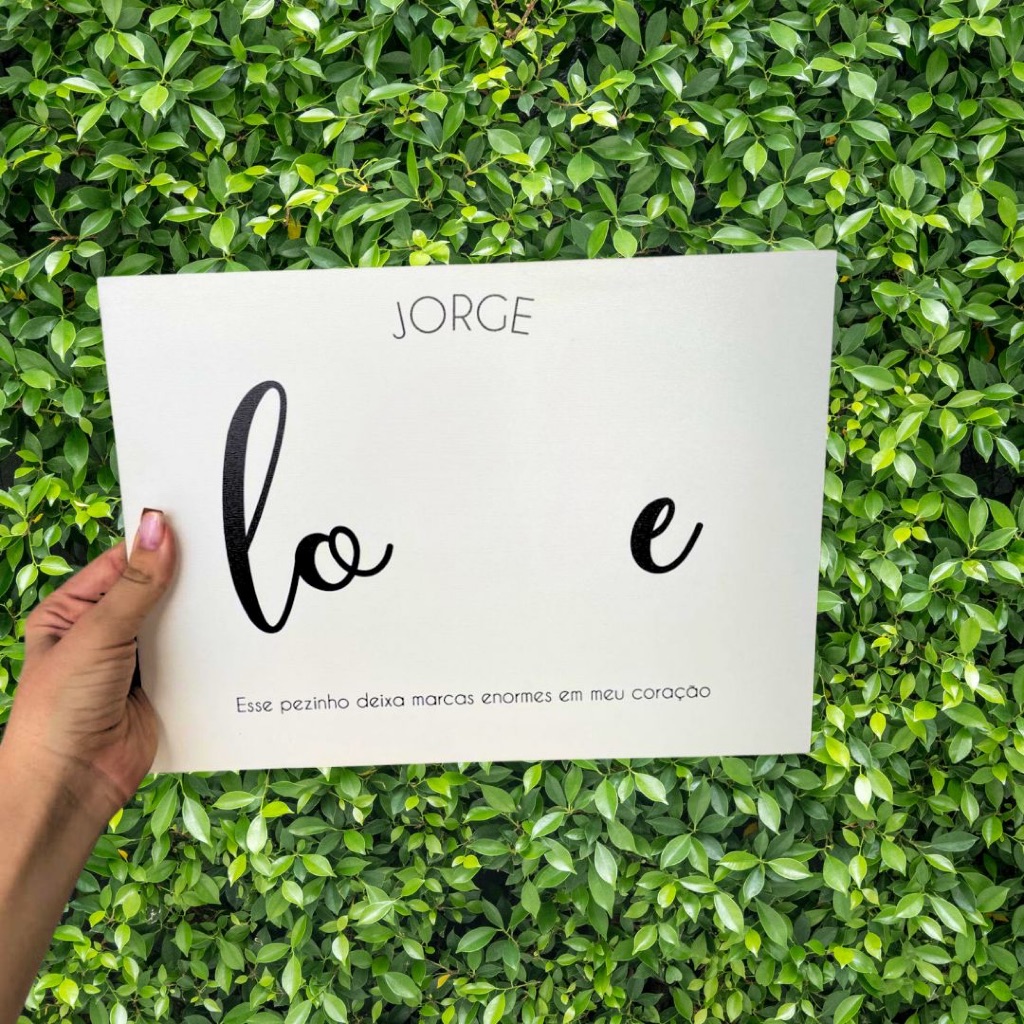 JORGE
lo e
Esse pezinho deixa marcas enormes em meu coração